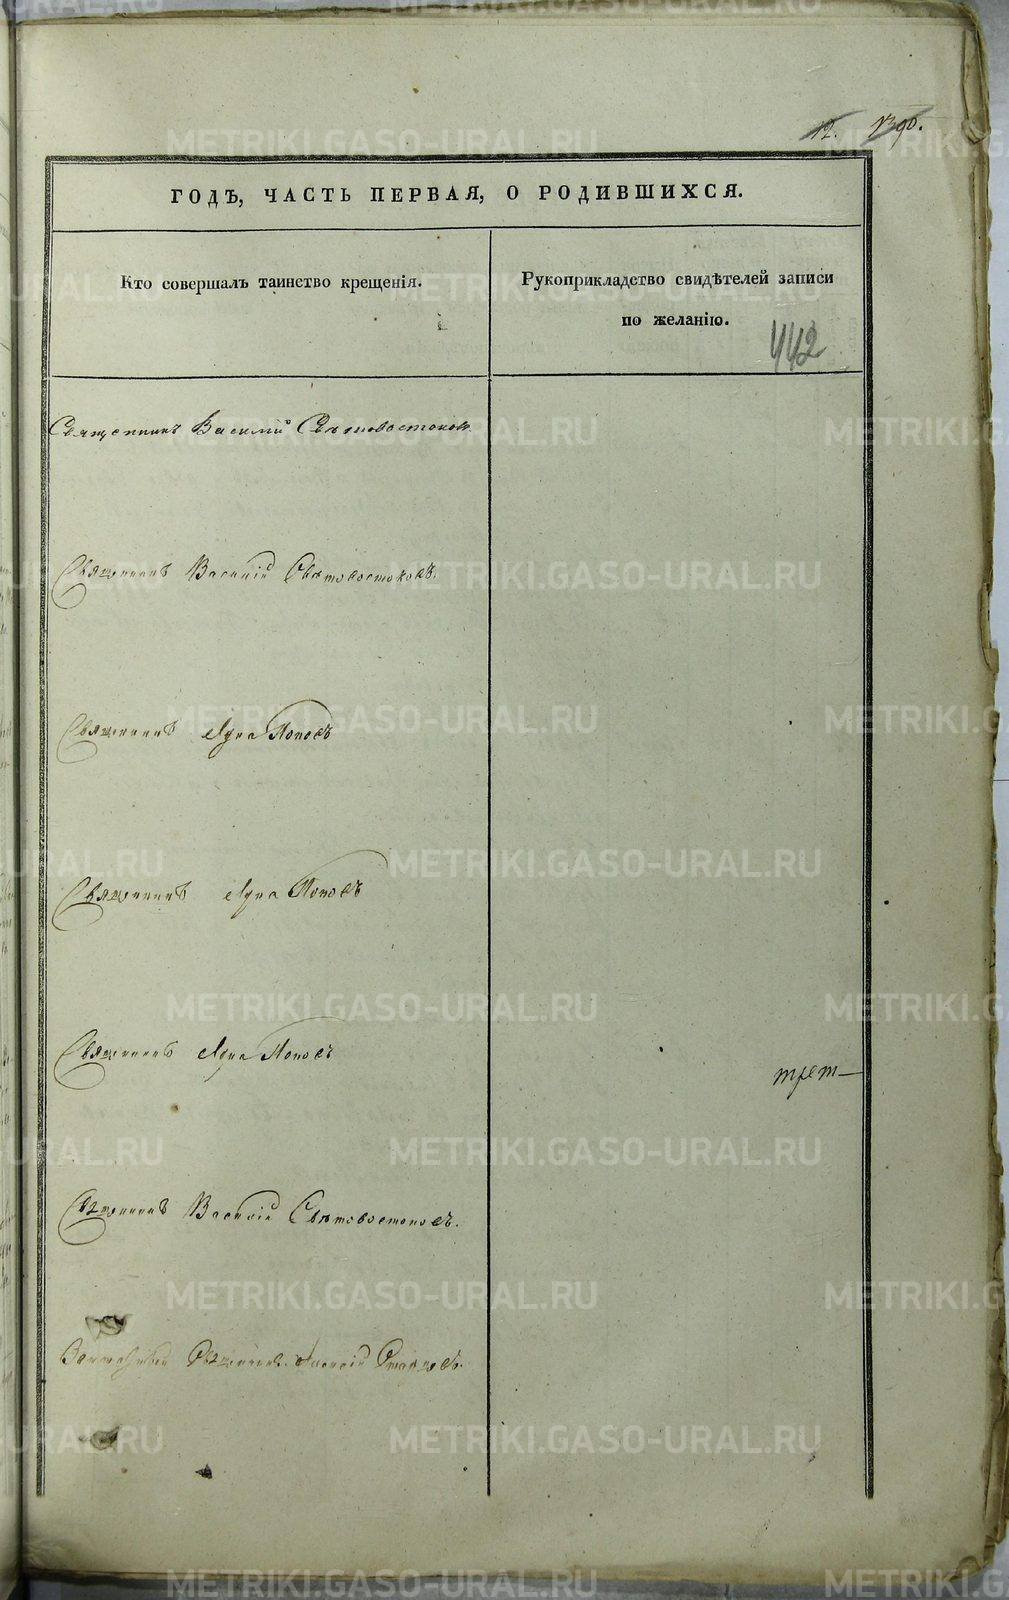 12.
ГОДЪ, ЧАСТЬ ПЕРВАЯ, О РОДИВШИХСЯ.
Кто совершалъ таинство крещенія.
Рукоприкладство свидѣтелей записи
по желанію.
442
Священникъ Василій Свѣтовостоковъ
Священникъ Василій Свѣтовостоковъ.
Священникъ Поповъ
Священникъ Поповъ
Священникъ Поповъ
трет—
Священникъ Василій Свѣтовостоковъ.
Священникъ
METRIKI.GASO-URAL.RU